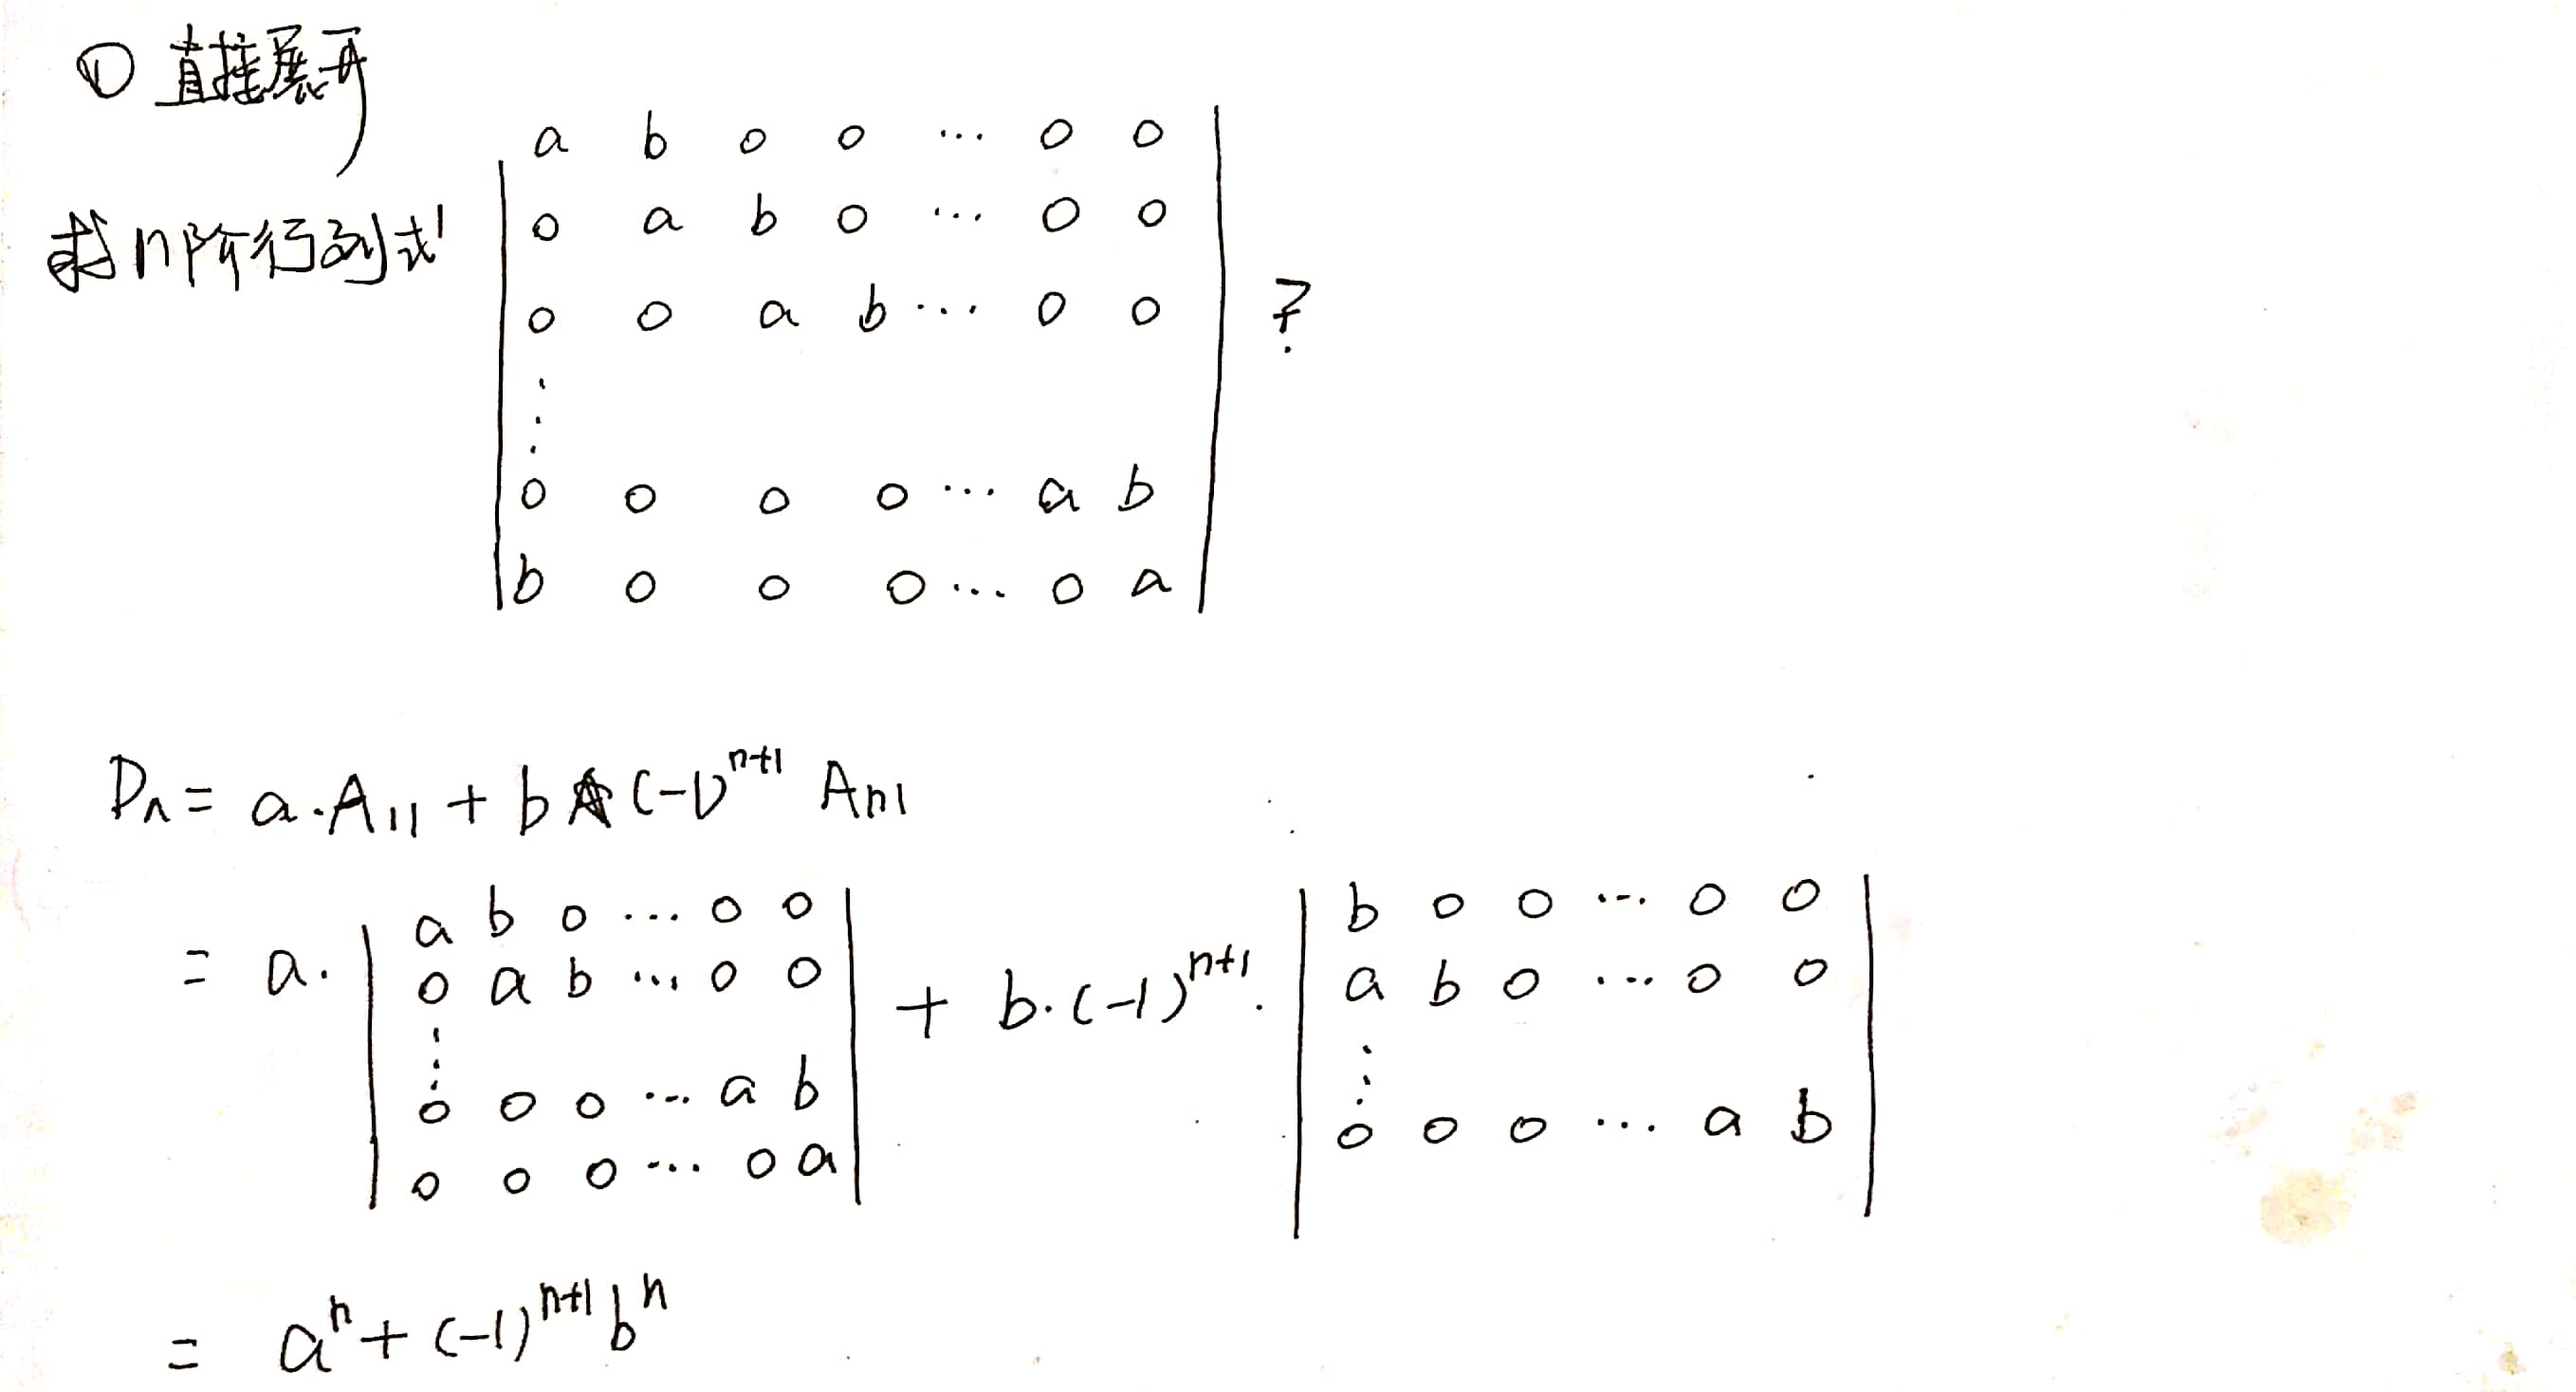 ① 直接展开
求n阶行列式
| a b 0 0 ⋯ 0 0 |
| 0 a b 0 ⋯ 0 0 |
| 0 0 a b ⋯ 0 0 | ?
⋮
| 0 0 0 0 ⋯ a b |
| b 0 0 0 ⋯ 0 a |
Dn = a·A11 + b (-1)^{n+1} An1
= a· | a b 0 ⋯ 0 0 ; 0 a b ⋯ 0 0 ; ⋮ ; 0 0 0 ⋯ a b ; 0 0 0 ⋯ 0 a | + b·(-1)^{n+1}· | b 0 0 ⋯ 0 0 ; a b 0 ⋯ 0 0 ; ⋮ ; 0 0 0 ⋯ a b |
= a^n + (-1)^{n+1} b^n